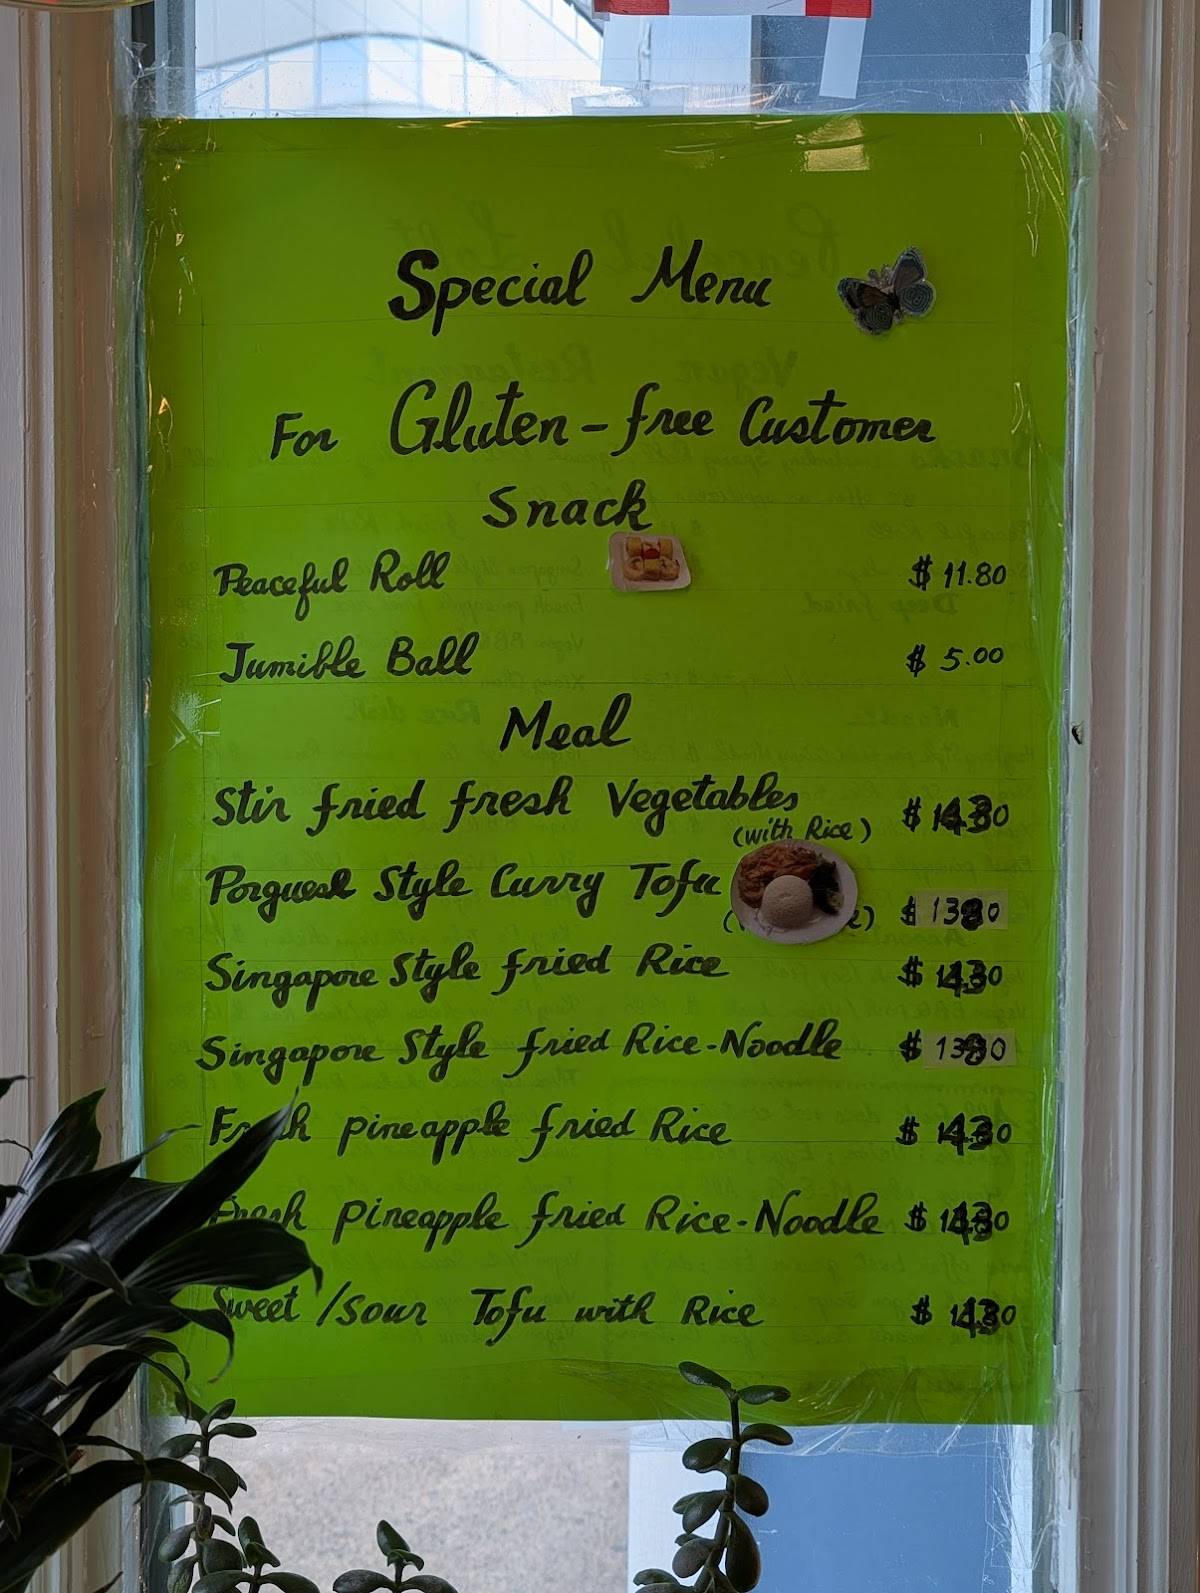 Special Menu
For Gluten-free Customer
Snack
Peaceful Roll $ 11.80
Jumible Ball $ 5.00
Meal
Stir fried fresh Vegetables $
(with Rice)
Porguese Style Curry Tofu $
Singapore Style fried Rice $
Singapore Style fried Rice-Noodle $
Fresh pineapple fried Rice $
Fresh pineapple fried Rice-Noodle $
Sweet/Sour Tofu with Rice $